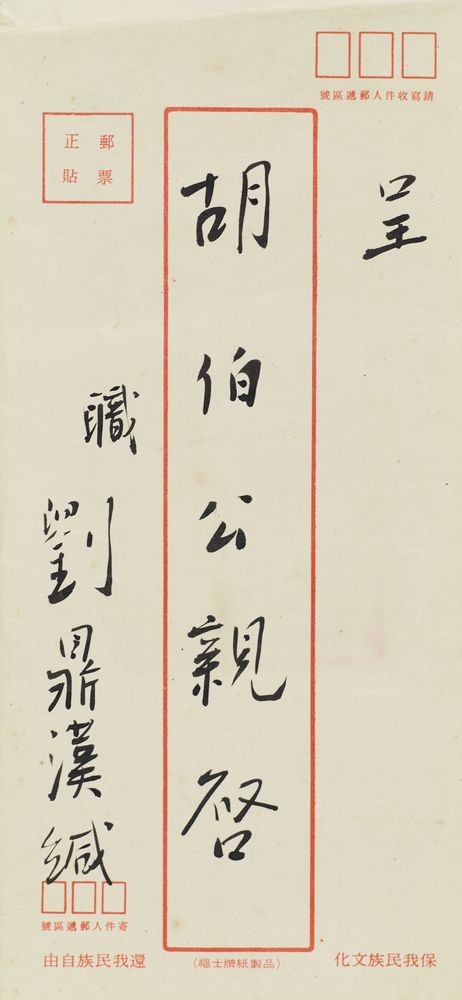 請寫收件人郵遞區號
呈
胡伯公親啓
郵票
正貼
職劉鼎漢緘
寄件人郵遞區號
保我民族文化
（福士牌紙製品）
還我民族自由